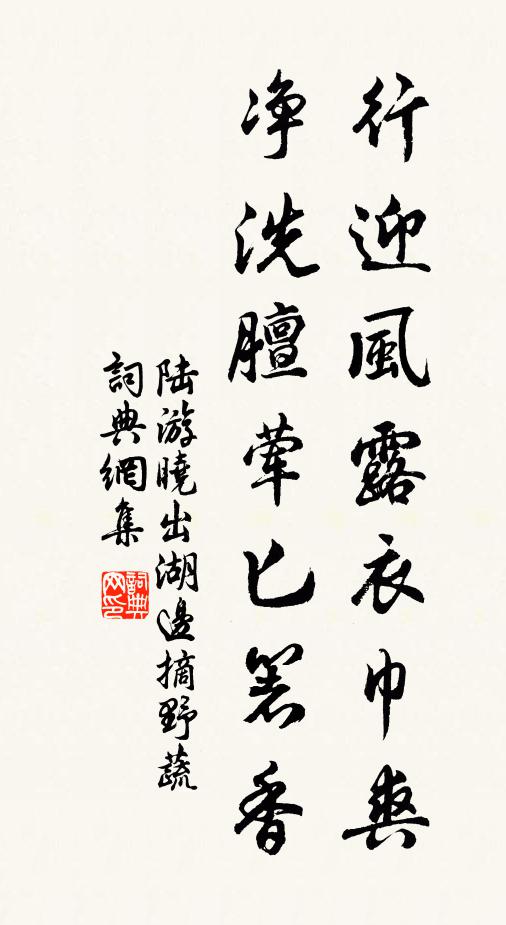 行迎風露衣巾爽
净洗膻葷匕箸香
陆游曉出湖邊摘野蔬
詞典網集
詞典网印